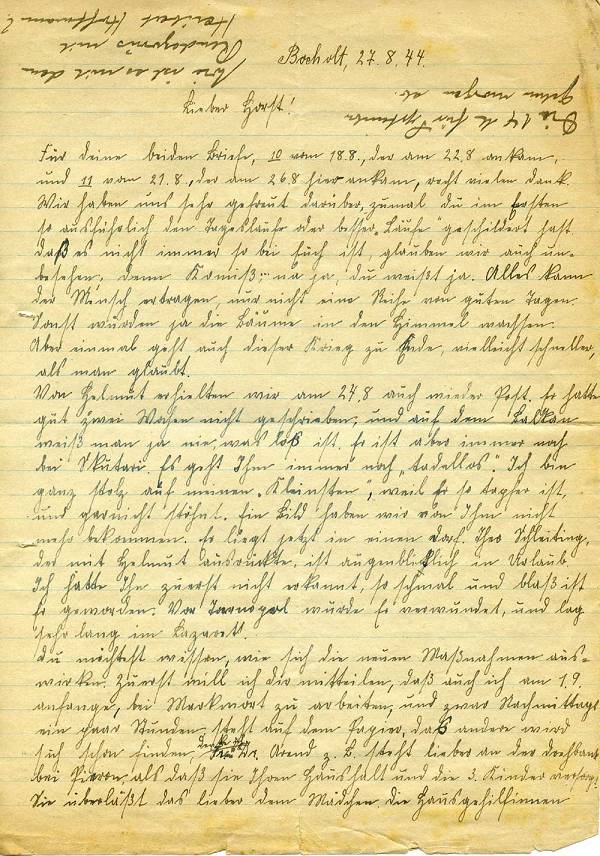 Bocholt, 27.8.44.
Lieber Horst!
Für deine beiden Briefe, 10 vom 18.8., der am 22.8 ankam,
und 11 vom 21.8., der am 26.8 hier ankam, recht vielen Dank.
Wir haben uns sehr gefreut darüber, zumal du im Ersten
so ausführlich den Tageslauf oder besser „Läufe" geschildert hast
daß es nicht immer so bei Euch ist, glauben wir auch un-
besehen, denn Komiß,- na ja, du weißt ja. Alles kann
der Mensch ertragen, nur nicht eine Reihe von guten Tagen.
Sonst würden ja die Bäume in den Himmel wachsen.
Aber einmal geht auch dieser Krieg zu Ende, vielleicht schneller,
als man glaubt.
Von Helmut erhielten wir am 24.8 auch wieder Post. Er hatte
gut zwei Wochen nicht geschrieben, und auf dem Balkan
weiß man ja nie, was loß ist. Er ist aber immer noch
bei Skutari. Es geht Ihm immer noch „tadellos". Ich bin
ganz stolz auf meinen „Kleinsten", weil Er so tapfer ist,
und garnicht stöhnt. Ein Bild haben wir von Ihm nicht
mehr bekommen. Er liegt jetzt in einen Dorf. Theo Schleiting,
der mit Helmut ausrückte, ist augenblicklich in Urlaub.
Ich hatte Ihn zuerst nicht erkannt, so schmal und blaß ist
Er geworden. Vor Tarnopol wurde Er verwundet, und lag
sehr lang im Lazarett.
Du möchtest wissen, wie sich die neuen Maßnahmen aus-
wirken. Zuerst will ich dir mitteilen, daß auch ich am 1.9.
anfange, bei Markwort zu arbeiten, und zwar Nachmittags
ein paar Stunden, steht auf dem Papier, daß andere wird
sich schon finden, Arend z. B. steht lieber an der Drehbank
bei Pierron, als daß sie Ihren Haushalt und die 3. Kinder versorgt.
Sie überläßt das lieber dem Mädchen. Die Hausgehilfinnen
Die 14 für
gehen morgen ab.
Wie ist es mit den
mit
Heribert Hoffmann?